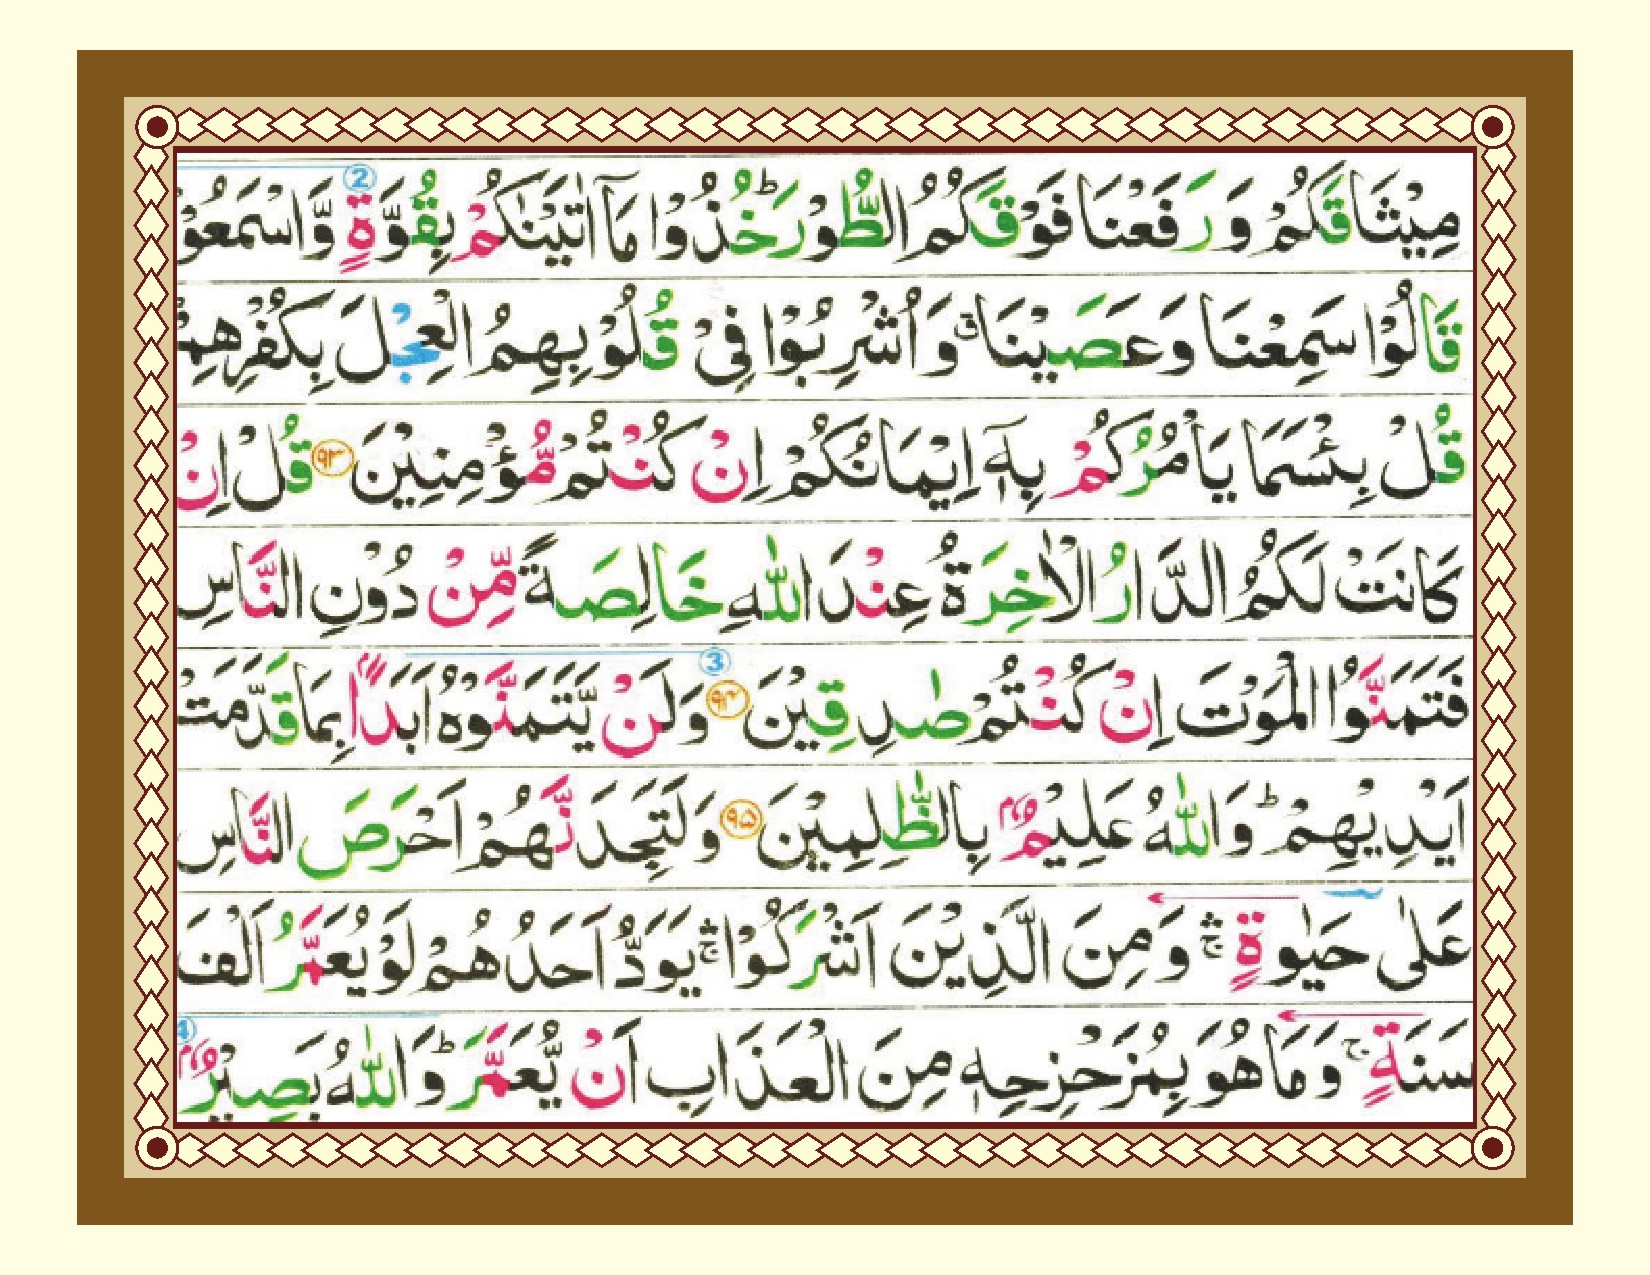 مِيْثَاقَكُمْ وَ رَفَعْنَا فَوْقَكُمُ الطُّوْرَ ؕ خُذُوْا مَاۤ اٰتَيْنٰكُمْ بِقُوَّةٍ وَّاسْمَعُوْ
قَالُوْا سَمِعْنَا وَعَصَيْنَا ۗ وَاُشْرِبُوْا فِيْ قُلُوْبِهِمُ الْعِجْلَ بِكُفْرِهِمْ
قُلْ بِئْسَمَا يَاْمُرُكُمْ بِهٖۤ اِيْمَانُكُمْ اِنْ كُنْتُمْ مُّؤْمِنِيْنَ ۹۳ قُلْ اِنْ
كَانَتْ لَكُمُ الدَّارُ الْاٰخِرَةُ عِنْدَ اللّٰهِ خَالِصَةً مِّنْ دُوْنِ النَّاسِ
فَتَمَنَّوُا الْمَوْتَ اِنْ كُنْتُمْ صٰدِقِيْنَ ۹۴ وَلَنْ يَّتَمَنَّوْهُ اَبَدًۢا بِمَا قَدَّمَتْ
اَيْدِيْهِمْ ؕ وَاللّٰهُ عَلِيْمٌۢ بِالظّٰلِمِيْنَ ۹۵ وَلَتَجِدَنَّهُمْ اَحْرَصَ النَّاسِ
عَلٰى حَيٰوةٍ ۛۚ وَمِنَ الَّذِيْنَ اَشْرَكُوْا ۛۚ يَوَدُّ اَحَدُهُمْ لَوْ يُعَمَّرُ اَلْفَ
سَنَةٍ ۚ وَمَا هُوَ بِمُزَحْزِحِهٖ مِنَ الْعَذَابِ اَنْ يُّعَمَّرَ ؕ وَاللّٰهُ بَصِيْرٌۢ